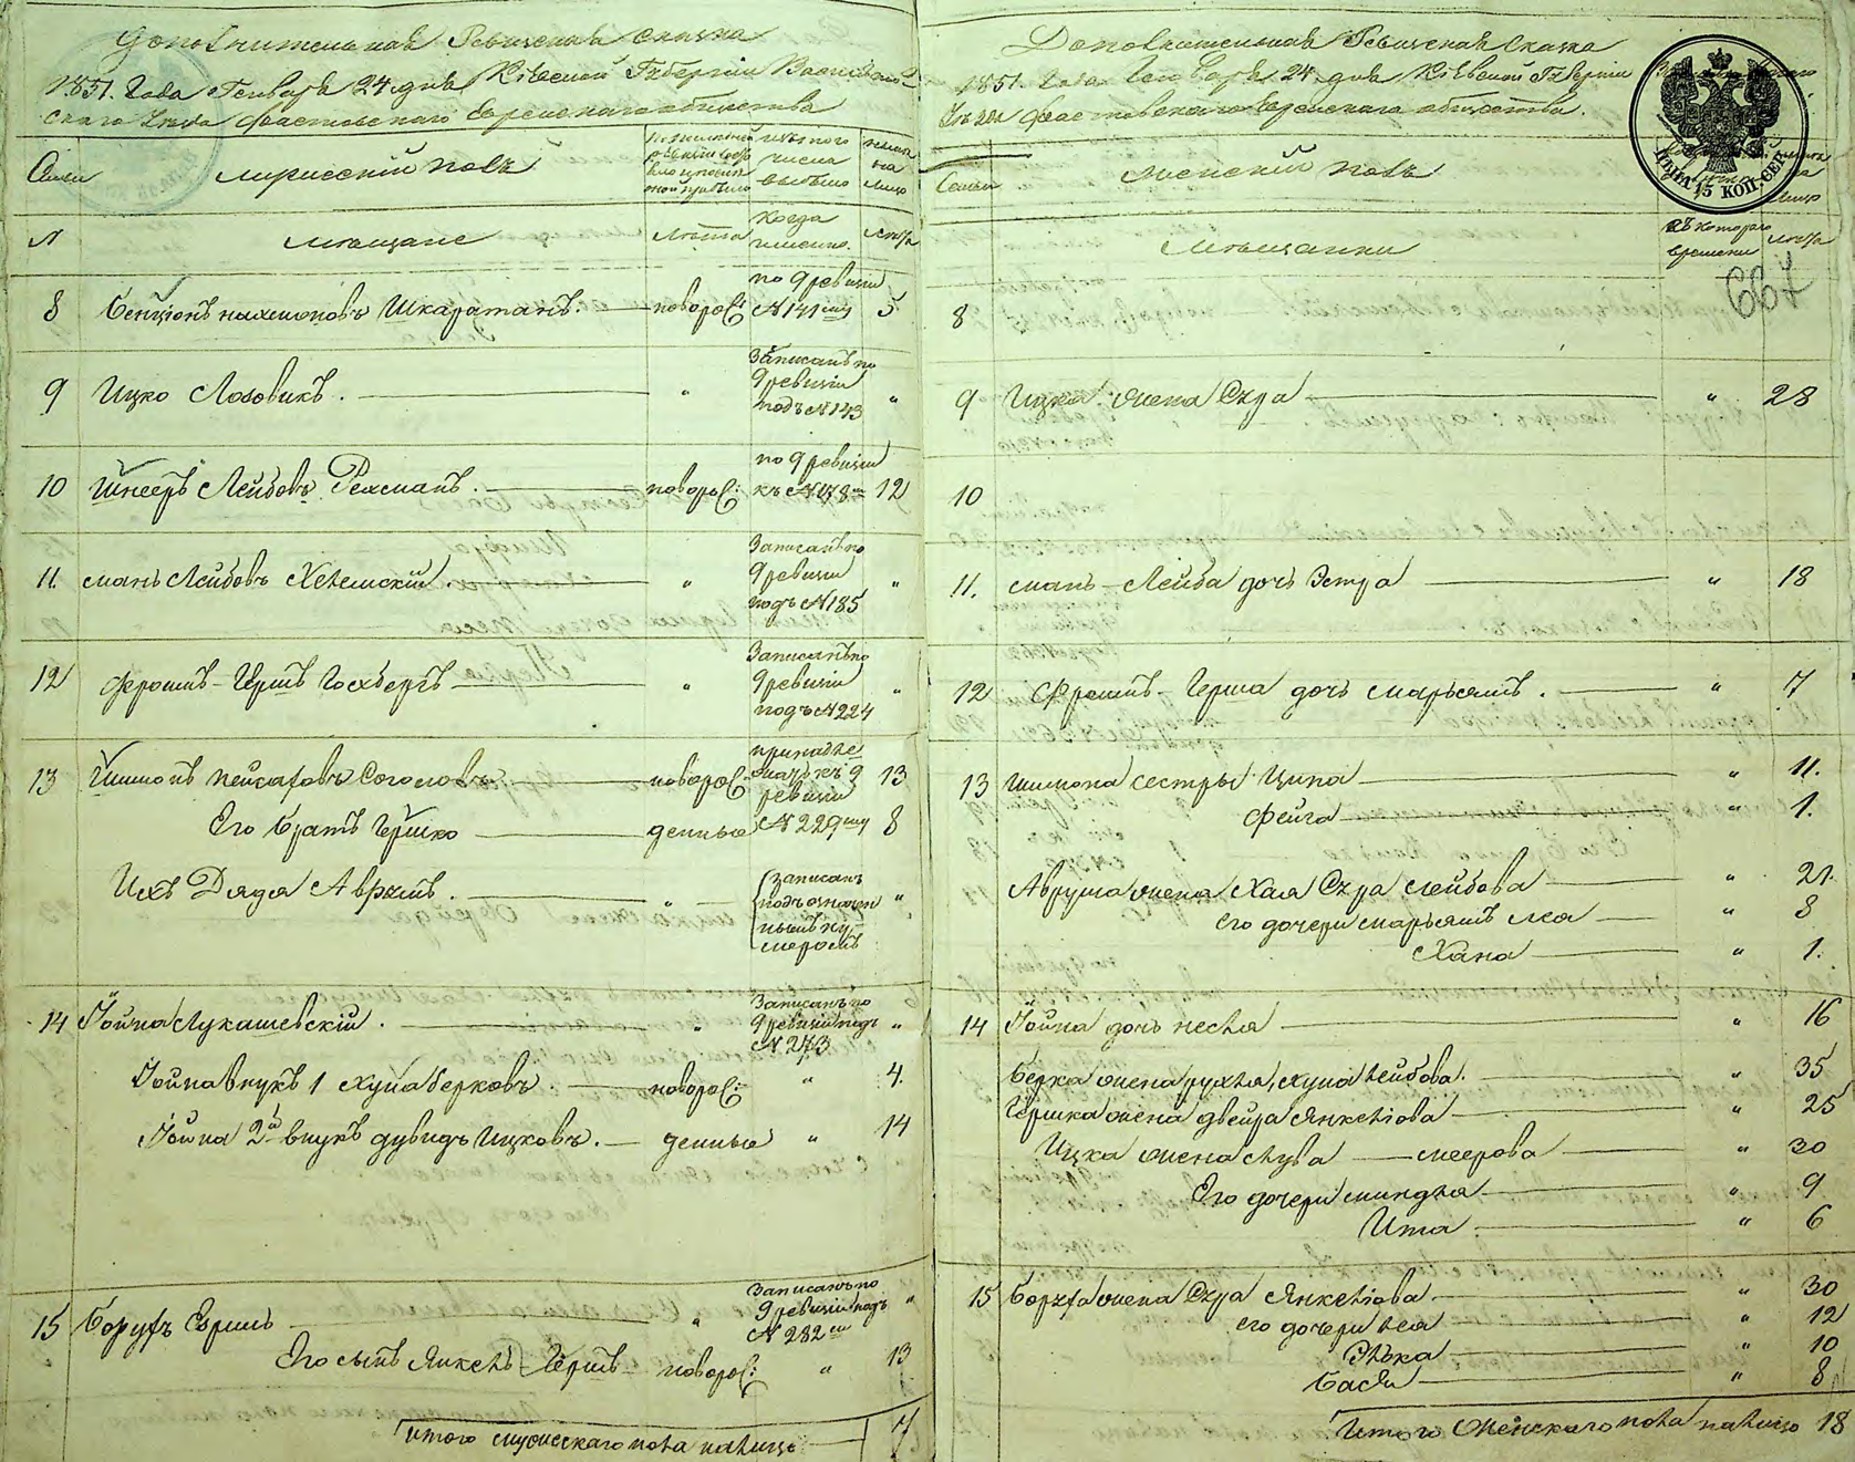 Дополнительная Ревизская сказка
1851. Года Генваря 24 дня Кіевской Губерніи Васильков-
скаго Уезда Фастовскаго Еврейскаго общества
Семьи
Мужескій полъ
изъ того
числа
выбыло
ныне
на
лицо
№
мещане
Лета
когда
именно
Лета
8 Бенціонъ Нахмановъ Шкаратанъ. новорож:
по 9 ревизіи
№ 141му 5
9 Ицко Лозовикъ. "
Записанъ по
9 ревизіи
подъ № 143 "
10 Шнееръ Лейбовъ Рехманъ. новорож:
по 9 ревизіи
къ № 178 12
11. Манъ Лейбовъ Хелемскій. "
Записанъ по
9 ревизіи
подъ № 185 "
12 Фроимъ-Гершъ Госхбергъ "
Записанъ по
9 ревизіи
подъ № 224 "
13 Шимонъ Пейсаховъ Соголовъ новорож-
принадле
жачъ къ 9
ревизіи 13
Его братъ Гершко денные № 229му 8
Ихъ Дядя Аврумъ. "
записанъ
подъ означен
нымъ ну-
меромъ "
14 Іойна Лукашевскій. "
Записанъ по
9 ревизіи подъ
№ 273 "
Іойна внукъ 1 Хуна Берковъ. новорож- " 4.
Іойна 2й внукъ Дувидъ Ицковъ. денные " 14
15 Борухъ Еориш "
Записанъ по
9 ревизіи подъ
№ 282 "
Его сынъ Янкель-Гершъ новорож: " 13
итого мужескаго пола налицо 7
Дополнительная Ревизская Сказка
1851. Года Генваря 24 дня Кіевской Губерніи
Уезда Фастовскаго Еврейскаго общества.
ЦЕНА 15 КОП. СЕР.
Семьи
Женскій полъ
лицо
мещанки
съ котораго
времени
лета
667
8
9 Ицка жена Сура " 28
10
11. Манъ-Лейба дочь Эстра " 18
12 Фроимъ-Герша дочь Марьямъ. " 7
13 Шимона сестры Ципа " 11.
Фейга " 1.
Аврума жена Хая Сура Лейбова " 21.
его дочери Марьямъ Леа " 8
Хана " 1.
14 Іойна дочь Несля " 16
Берка жена Рухля, Хума Лейбова. " 35
Гершка жена Двейра Янкелова " 25
Ицка жена Луба - Меерова " 30
Его дочери Миндля " 9
Ита " 6
15 Боруха жена Сура Янкелова " 30
его дочери Лея " 12
Элька " 10
Бася " 8
Итого Женскаго пола налицо 18